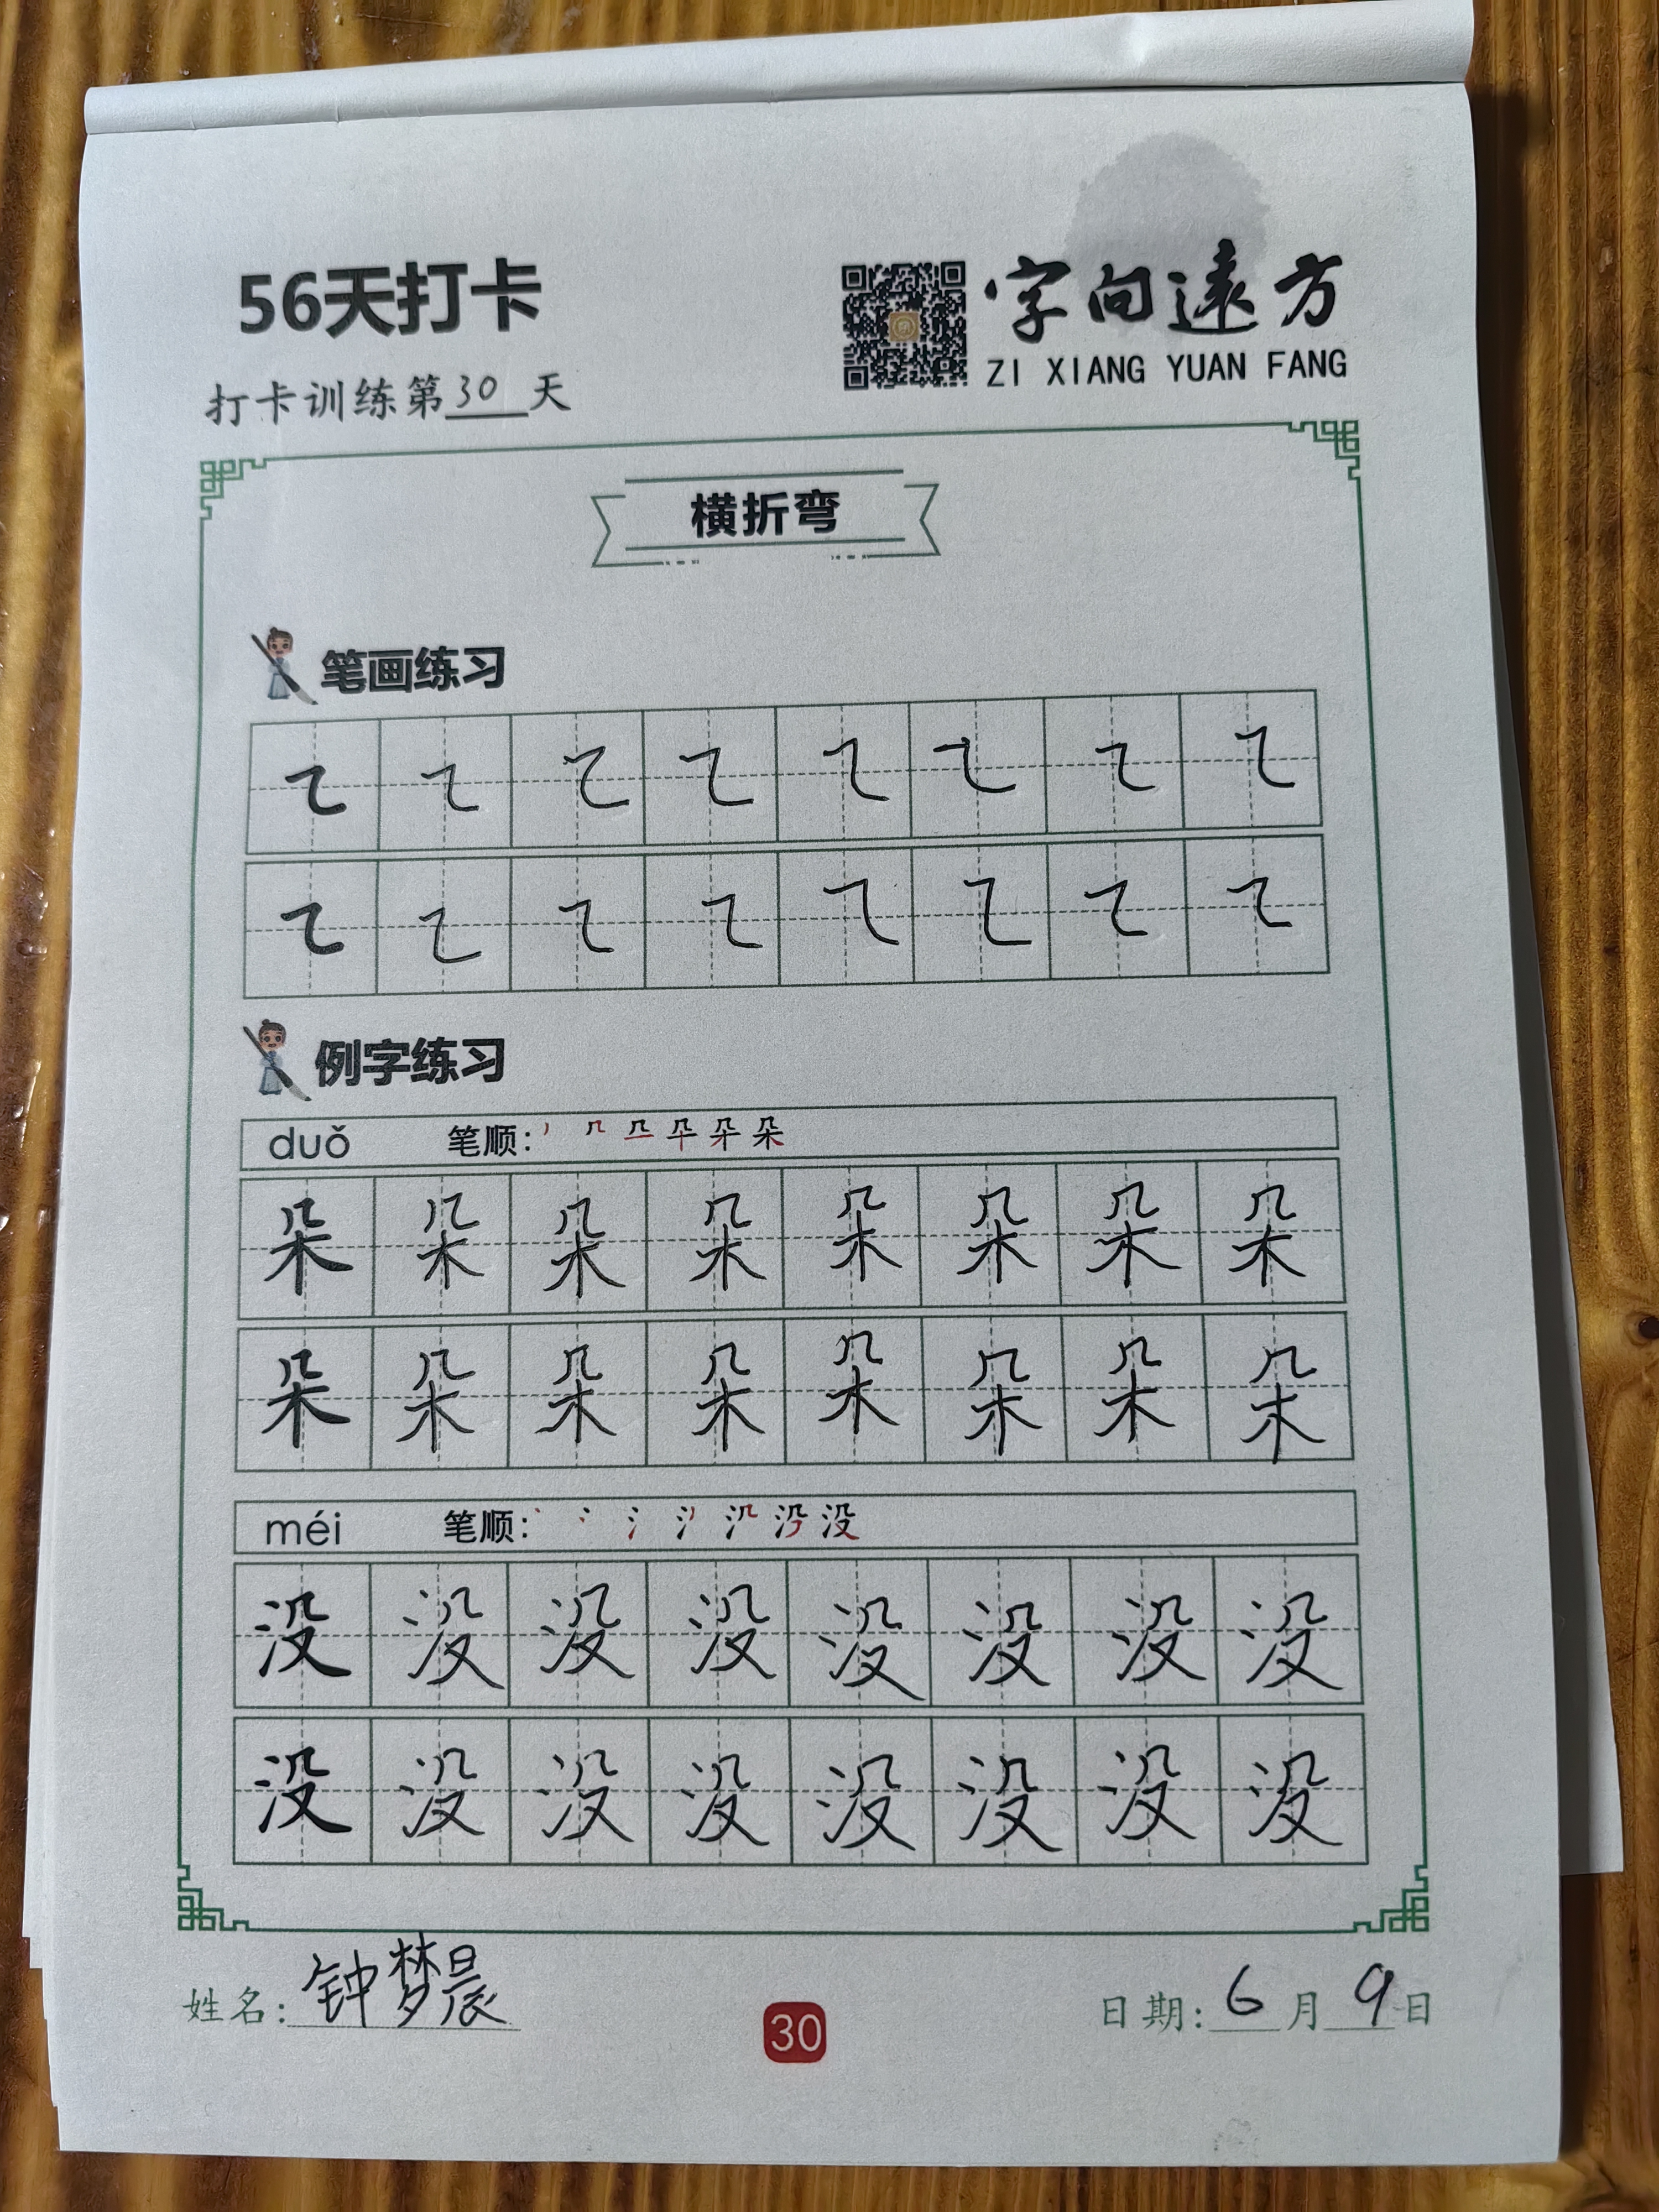 56天打卡
字向遠方
ZI XIANG YUAN FANG
打卡训练第30天
横折弯
笔画练习
㇍ ㇍ ㇍ ㇍ ㇍ ㇍ ㇍ ㇍
㇍ ㇍ ㇍ ㇍ ㇍ ㇍ ㇍ ㇍
例字练习
duǒ 笔顺: 朵
朵 朵 朵 朵 朵 朵 朵 朵
朵 朵 朵 朵 朵 朵 朵 朵
méi 笔顺: 没
没 没 没 没 没 没 没 没
没 没 没 没 没 没 没 没
姓名: 钟梦晨
30
日期: 6月9日